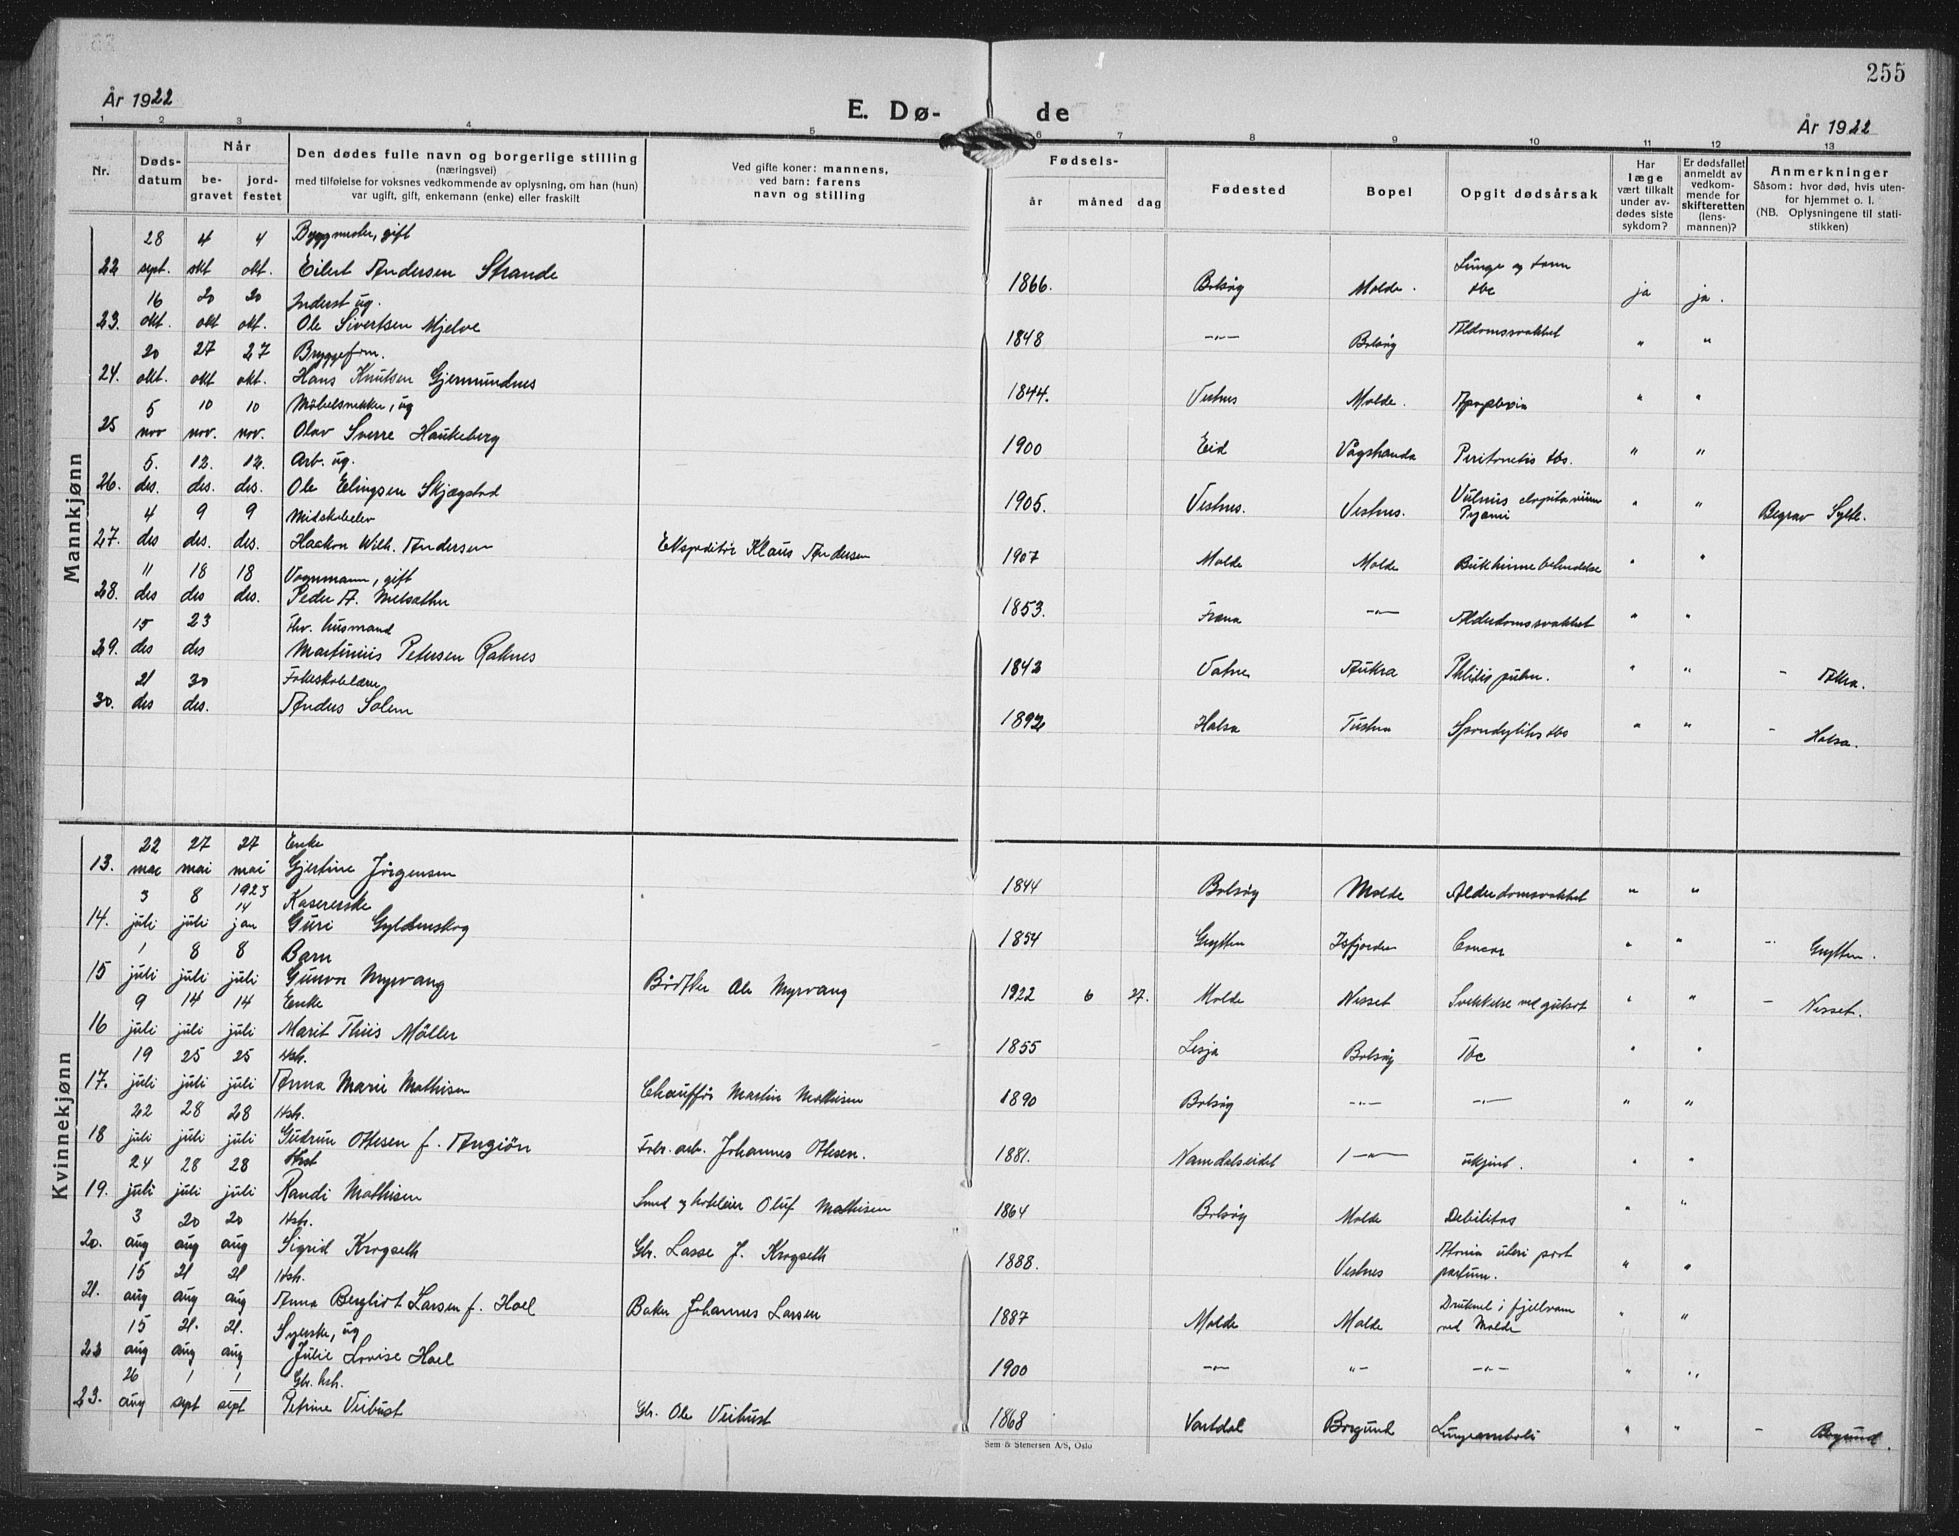 255
År 1922
E. Dø-
de
År 1922
1 2 3 4 5 6 7 8 9 10 11 12 13
Nr.
Døds-
datum
Når
be-
gravet
jord-
festet
Den dødes fulle navn og borgerlige stilling
(næringsvei)
med tilføielse for voksnes vedkommende av oplysning, om han (hun)
var ugift, gift, enkemann (enke) eller fraskilt
Ved gifte koner: mannens,
ved barn: farens
navn og stilling
Fødsels-
år
måned
dag
Fødested
Bopel
Opgit dødsårsak
Har
læge
vært tilkalt
under av-
dødes siste
sykdom?
Er dødsfallet
anmeldt av
vedkom-
mende for
skifteretten
(lens-
mannen)?
Anmerkninger
Såsom: hvor død, hvis uten-
for hjemmet o. l.
(NB. Oplysningene til stati-
stikken)
Mannkjønn
28 4 4 Byggmester, gift
22 sept. okt okt. Eilert Andersen Strande 1866. Bolsøy Molde. Lunge og tarm tbc ja ja.
16 20 20 Inderst ug.
23. okt. okt okt. Ole Sivertsen Mjelve 1848 -"- Bolsøy Aldomssvakhet " "
20 27 27 Bryggeform.
24. okt. okt okt. Hans Knutsen Gjermundnes 1844. Vestnes Molde. Apoplexia " "
5 10 10 Møbelsnekker, ug
25 nov nov. nov. Olav Sverre Haukeberg 1900 Eid Vågstranda Peritonetis tbs. " "
5. 12. 12. Arb. ug.
26. des. des. des. Ole Elingsen Skjægstad 1905. Vestnes. Vestnes. Vulnus Pyæmi " " Begrav Sylte.
4 9 9 Midskoleelev
27. des des. des. Haakon Wilh. Andersen Ekspeditør Klaus Andersen 1907 Molde Molde Bukhinnebetendelse " "
11 18 18 Vognmann, gift
28. des des des. Peder A. Melsæther 1853. Fræna -"- Alderdomssvakhet " "
15 23 Fhv. husmand
29. des des Martinius Petersen Raknes 1843 Vatne Aukra Phtisis pulm. " " - Akra.
21 30 Folkeskolelærer
30. des des. Anders Solem 1892 Halsa Tustna Spondylitis tbs " " - Halsa.
Kvinnekjønn
22 27 27 Enke
13. mai mai mai Gjertine Jørgensen 1844 Bolsøy Molde Alderdomsvakhet " "
3 8 1923
14 Kasererske
14. juli juli jan Guri Gyldenskog 1854 Grytten Isfjorden Cancer " " -" Grytten.
1 8 8 Barn
15 juli juli juli Gunvor Myrvang Bødker Ole Myrvang 1922 6 27. Molde Nesset Svekkelse ved gulsot " " - Nesset.
9 14 14 Enke
16 juli juli juli Marit Thiis Møller 1855 Lesja Bolsøy Tbc " "
19 25 25 Hsh.
17. juli juli juli Anna Marie Mathisen Chauffør Martin Mathisen 1890 Bolsøy -"- -"- " "
22 28 28 Hsh.
18 juli juli juli Gudrun Ottesen f. Angiøn Fabr. arb. Johannes Ottesen. 1881. Namdalseidet -"- ukjent. " "
24 28 28 Hst
19. juli juli juli Randi Mathisen Smed og hoteleier Oluf Mathisen 1864 Bolsøy Molde Debilitas " "
3 20 20 Hsh.
20. aug aug aug Sigrid Krogseth Gbr. Lasse J. Krogseth 1888. Vestnes Atonia uteri post partum. " "
15 21 21 Hsh.
21. aug aug aug Anna Bergliot Larsen f. Hoel Baker Johannes Larsen 1887 Molde Molde Druknet i fjellvann ved Molde " "
15 21. 21. Syerske, ug
22 aug aug aug Julie Lovise Hoel 1900 -"- "- -"- " "
26 1 1 Gbr. hsh.
23. aug sept sept Petrine Veibust Gbr. Ole Veibust 1868 Vartdal Borgund Lungeemboli " " - Borgund.
Sem & Stenersen A/S, Oslo